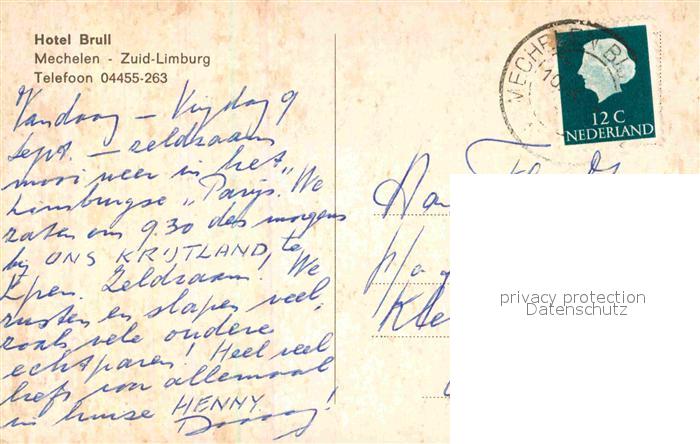 Hotel Brull
Mechelen - Zuid-Limburg
Telefoon 04455-263
Vandaag — Vrijdag 9
Sept. — zeldzaam
mooi weer in het
Limburgse „Parijs. We
zaten om 9.30 des morgens
bij ONS KRIJTLAND, te
Epen. Zeldzaam! We
rusten en slapen veel,
zoals vele oudere
echtparen! Heel veel
liefs voor allemaal
in huize HENNY.
Daaag!
MECHELEN
12 C
NEDERLAND
Aan
Kle
privacy protection
Datenschutz